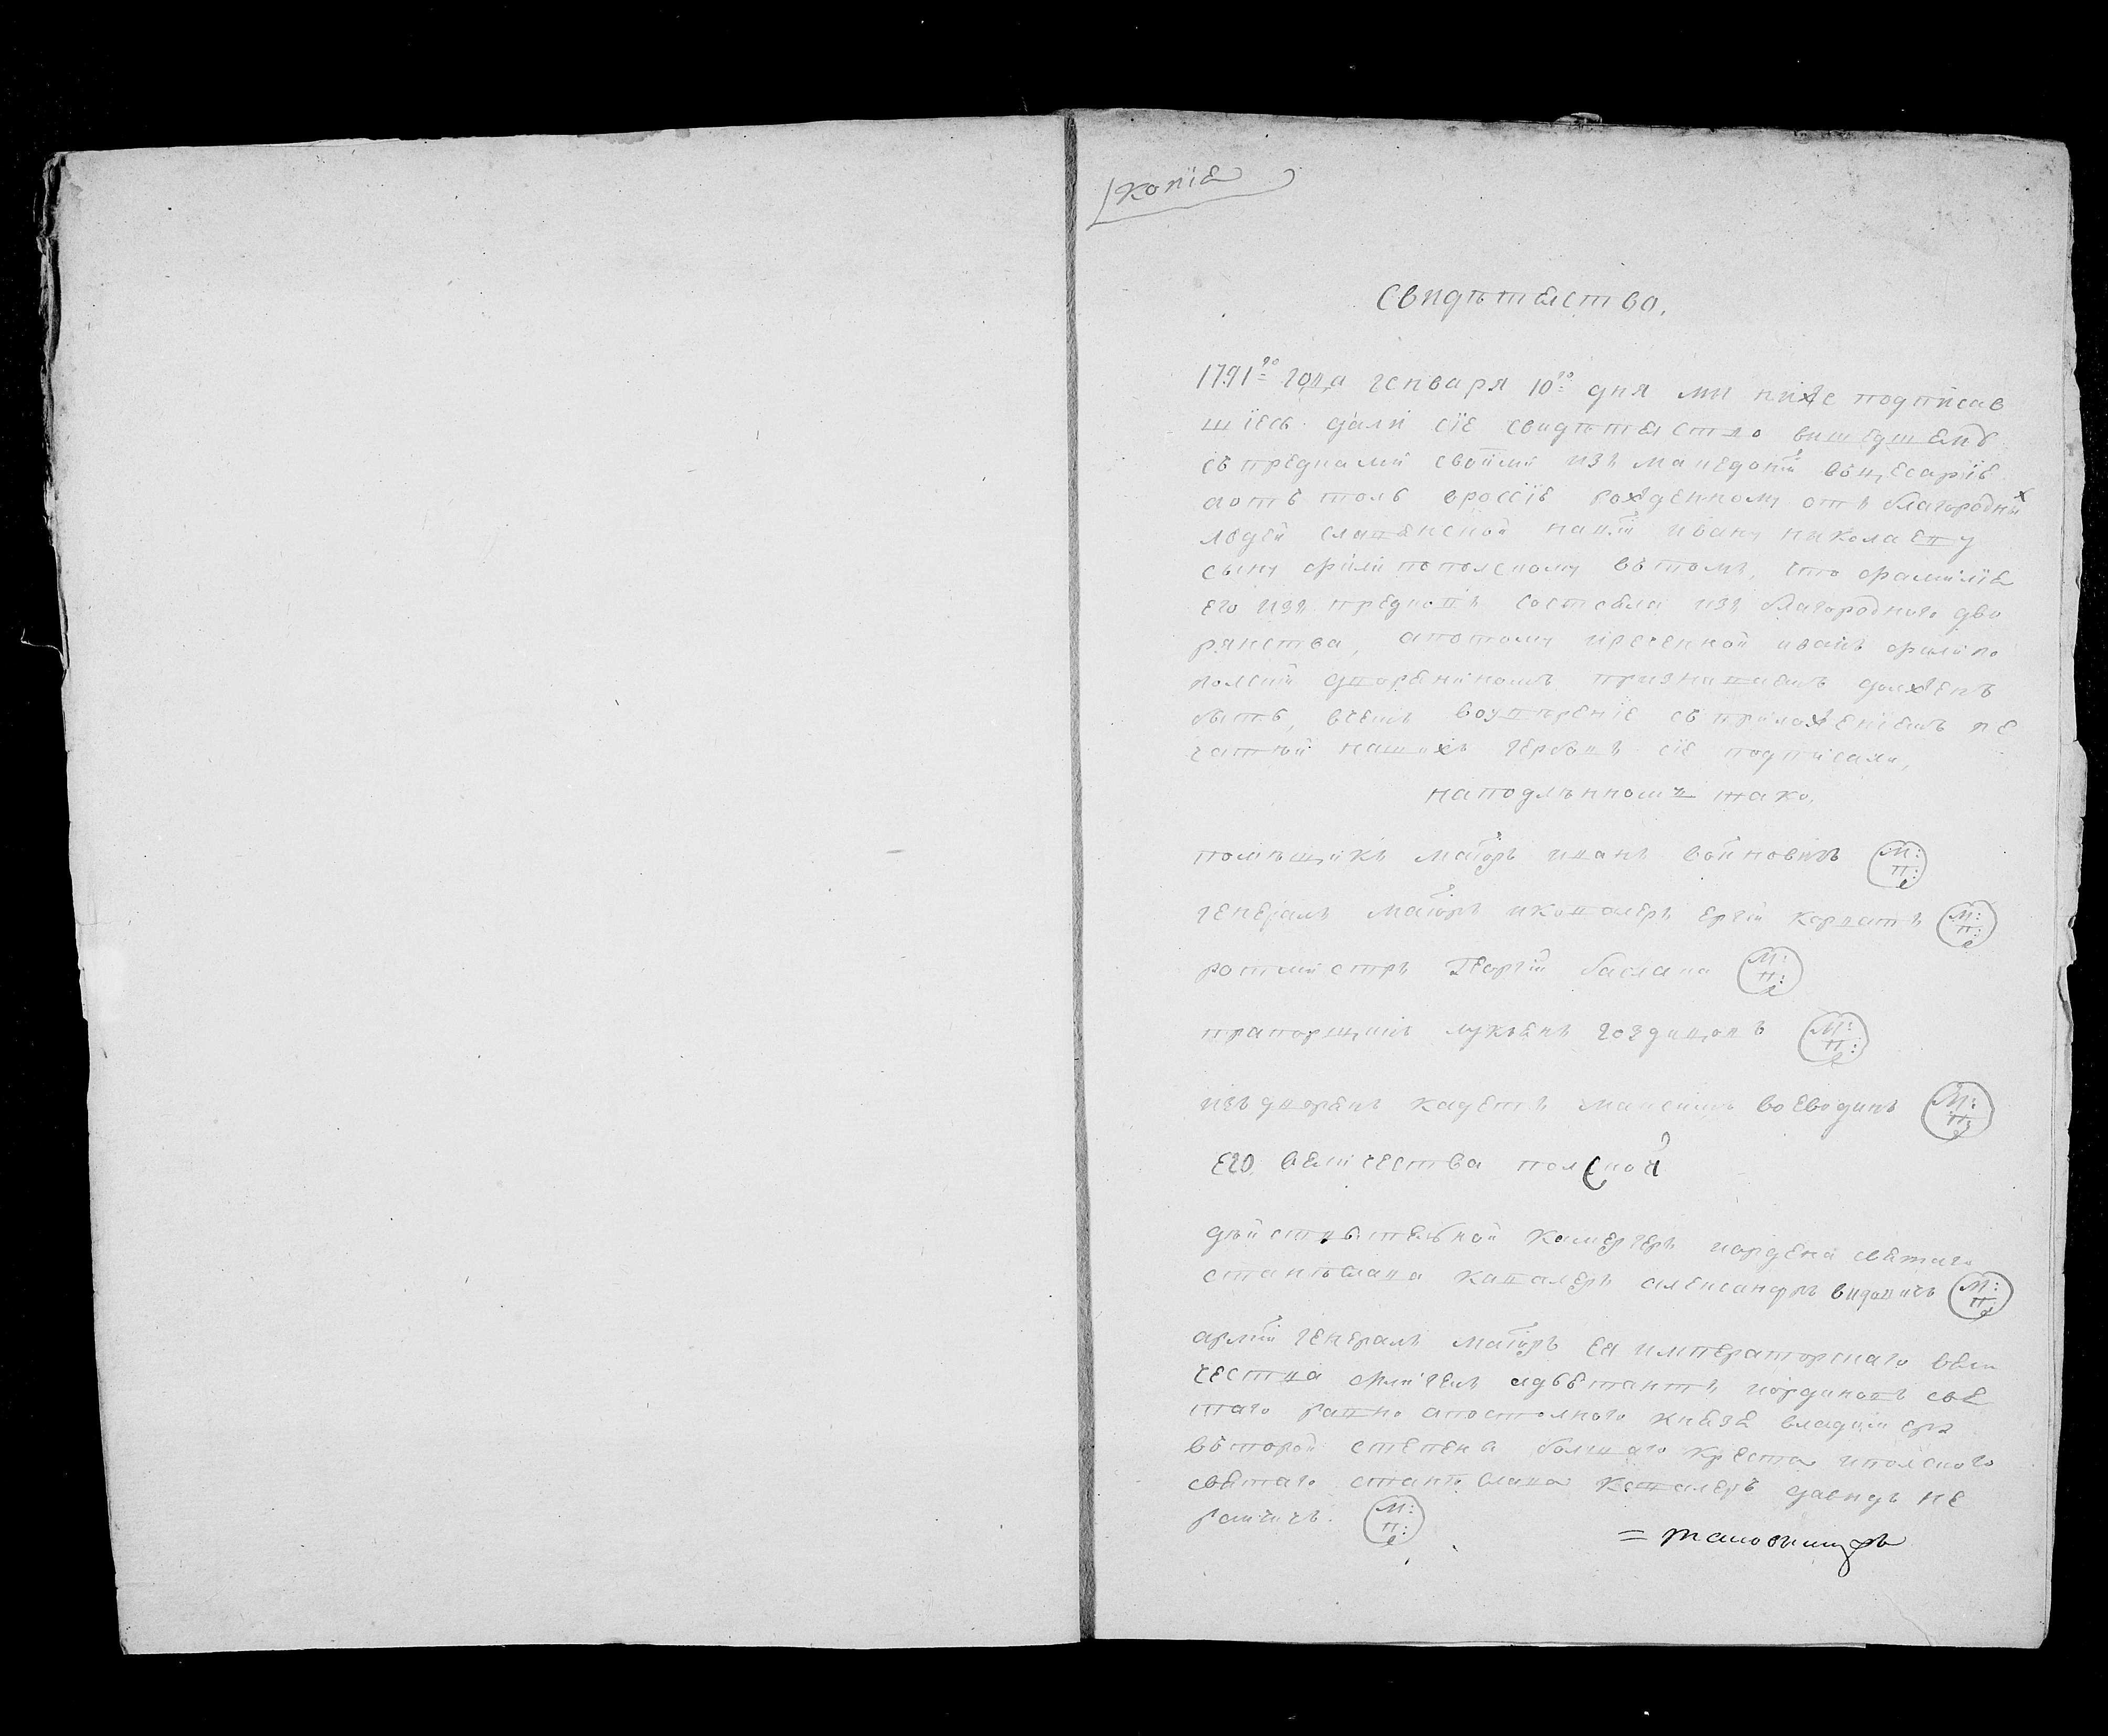 копіѣ
свидѣтелство.
1791го года генваря 10го дня ми ниже подписав
шіесь дали сіе свидѣтелство вишедшему
съ предками своими изъ македоніи въцесаріе
аотъ толь вроссіѣ рожденному отъ благородных
людей славенской націи ивану николаеву
сыну филипополскому вътомъ, что фамиліѣ
его изъ предковъ состоѣла изъ благородного дво
рянства, апотому иреченной иванъ филипо
полскій дворѣниномъ признаваемъ долженъ
быть, вчемъ воувѣреніе съ приложеніемъ пе
чатнѣй нашихъ гербовъ сіе подписали,
наподлѣнномъ тако.
помѣщикъ маіоръ иванъ войновичъ М: П:
генералъ маіоръ икавалеръ ергій корватъ М: П:
ротмистръ Георгій баслана М: П:
прапорщикъ лукъѣнъ М: П:
изъ дворѣнъ кадетъ максимъ воеводинъ М: П:
его величества полской
дѣйствителной камергеръ иордена свѣтаго
станіслава кавалеръ александръ видовичъ М: П:
арміи генералъ маіоръ ея императорскаго вели
чества флигель адъютантъ иордіновъ свѣ
таго равно апостолного кнѣзѣ владимера
въторой степени болшаго креста иполского
свѣтаго станіслава кавалеръ давидъ не
ранчичъ. М: П: